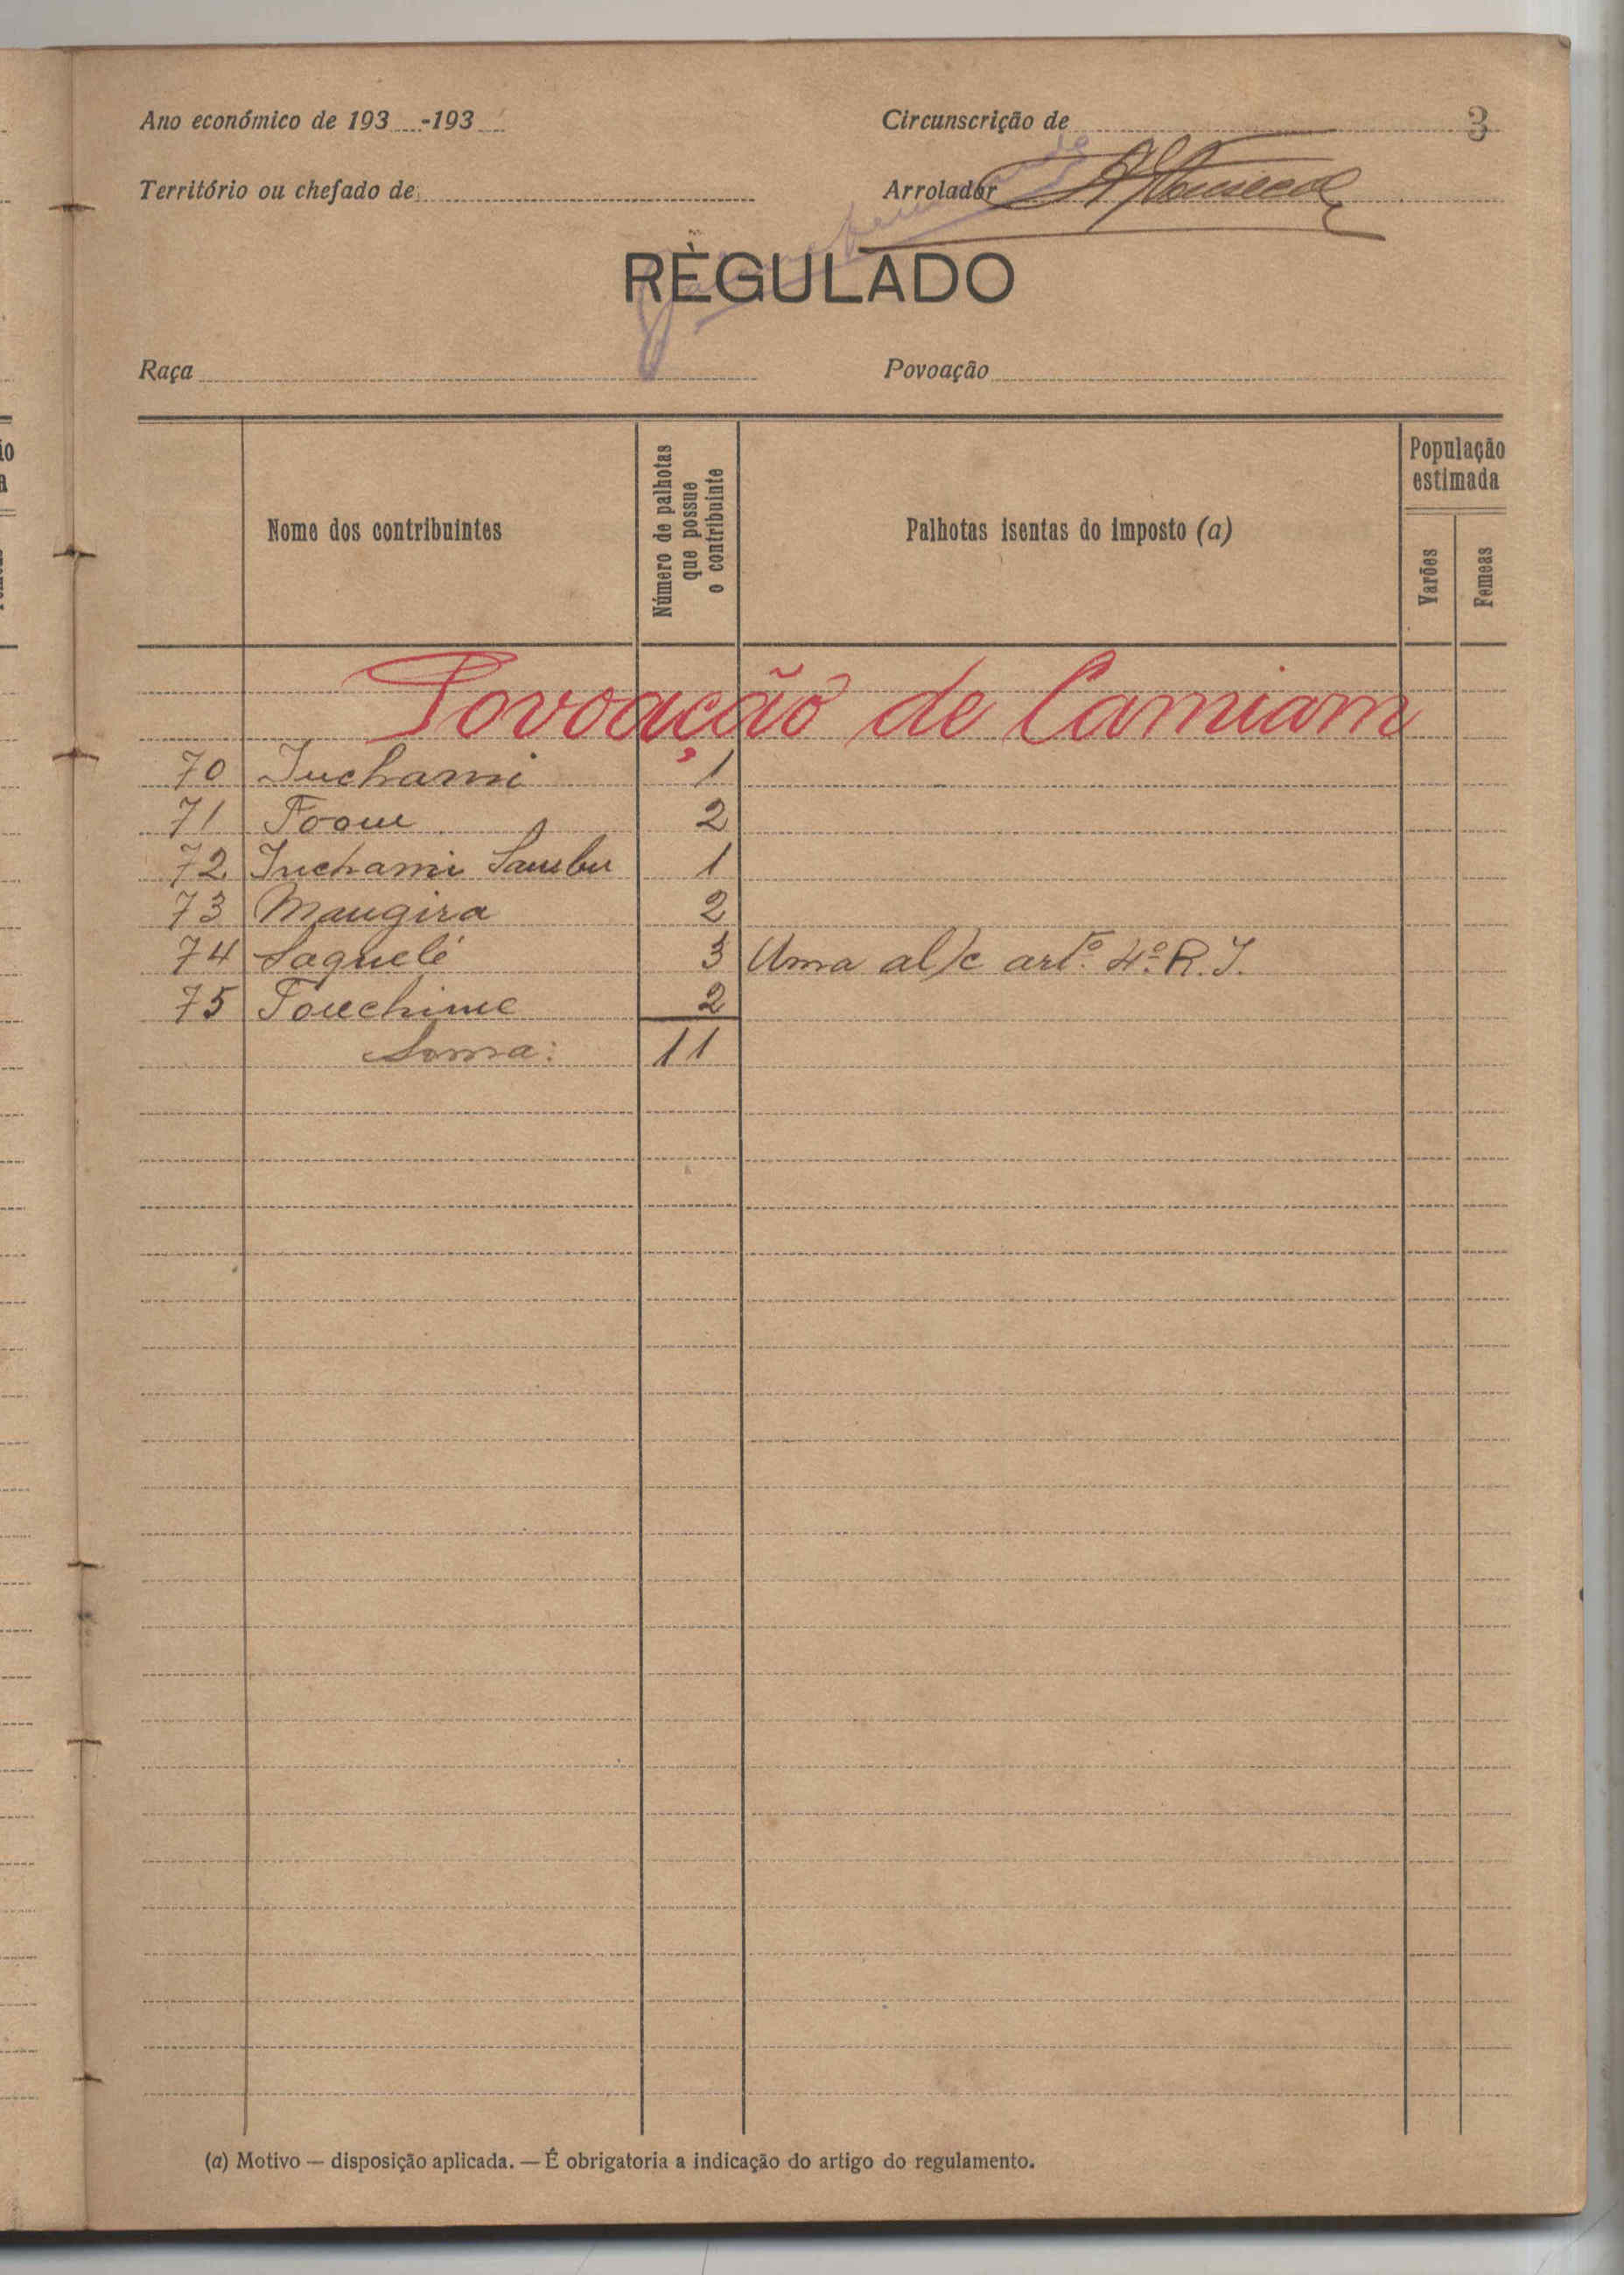 Ano económico de 193 -193
Circunscrição de
3
Território ou chefado de
Arrolador
RÈGULADO
Raça
Povoação
Nome dos contribuintes
Número de palhotas
que possue
o contribuinte
Palhotas isentas do imposto (a)
População
estimada
Varões
Femeas
Povoação de Camiam
70 Inchami 1
71 Foom 2
72 Inchami Sambu 1
73 Mangira 2
74 Saquelé 3 Uma al/c artº. 4º. R. I.
75 2
Soma: 11
(a) Motivo — disposição aplicada. — É obrigatoria a indicação do artigo do regulamento.